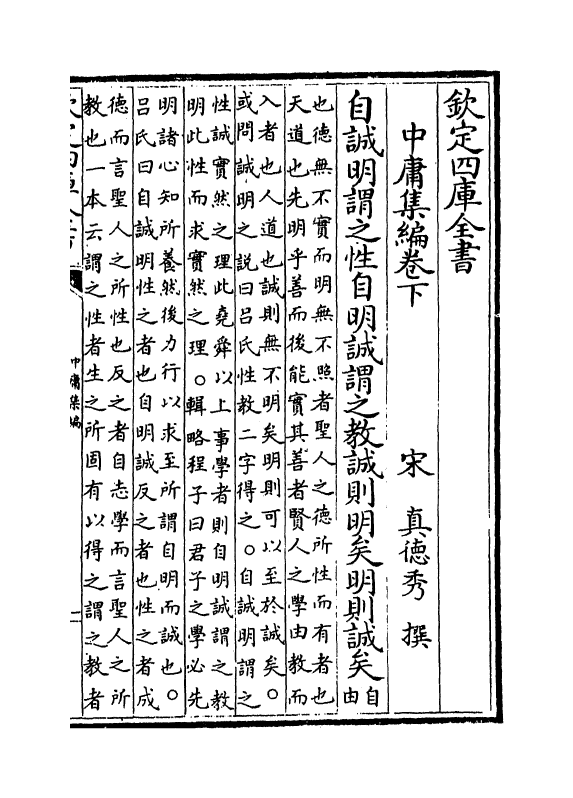 欽定四庫全書
中庸集編卷下
宋 真德秀 撰
自誠明謂之性自明誠謂之教誠則明矣明則誠矣自由
也德無不實而明無不照者聖人之德所性而有者也
天道也先明乎善而後能實其善者賢人之學由教而
入者也人道也誠則無不明矣明則可以至於誠矣○
或問誠明之説曰吕氏性教二字得之○自誠明謂之
性誠實然之理此堯舜以上事學者則自明誠謂之教
明此性而求實然之理○輯略程子曰君子之學必先
明諸心知所養然後力行以求至所謂自明而誠也○
吕氏曰自誠明性之者也自明誠反之者也性之者成
德而言聖人之所性也反之者自志學而言聖人之所
教也一本云謂之性者生之所固有以得之謂之教者
中庸集編